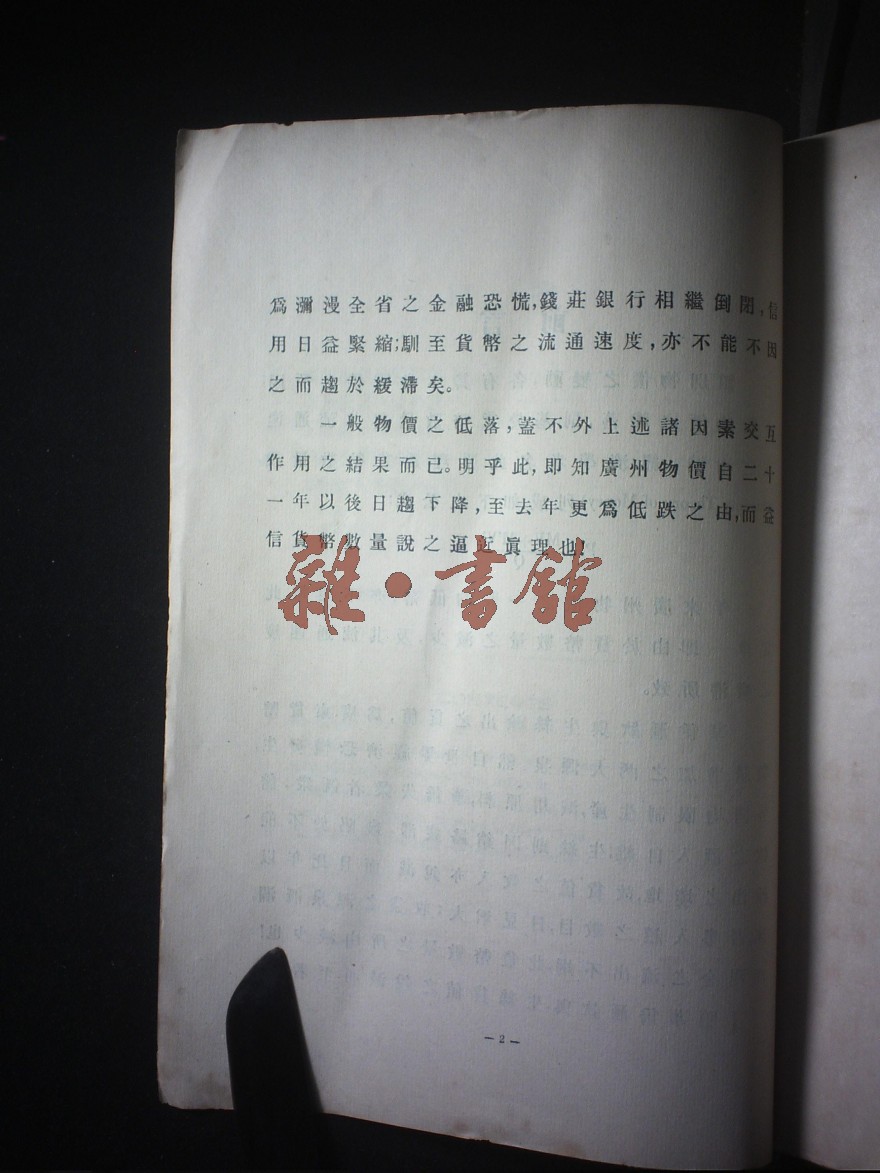 爲瀰漫全省之金融恐慌,錢莊銀行相繼倒閉,信
用日益緊縮;馴至貨幣之流通速度,亦不能不因
之而趨於緩滯矣。
一般物價之低落,蓋不外上述諸因素交互
作用之結果而已。明乎此,即知廣州物價自二十
一年以後日趨下降,至去年更爲低跌之由,而益
信貨幣數量說之逼近眞理也!
雜·書館
—2—